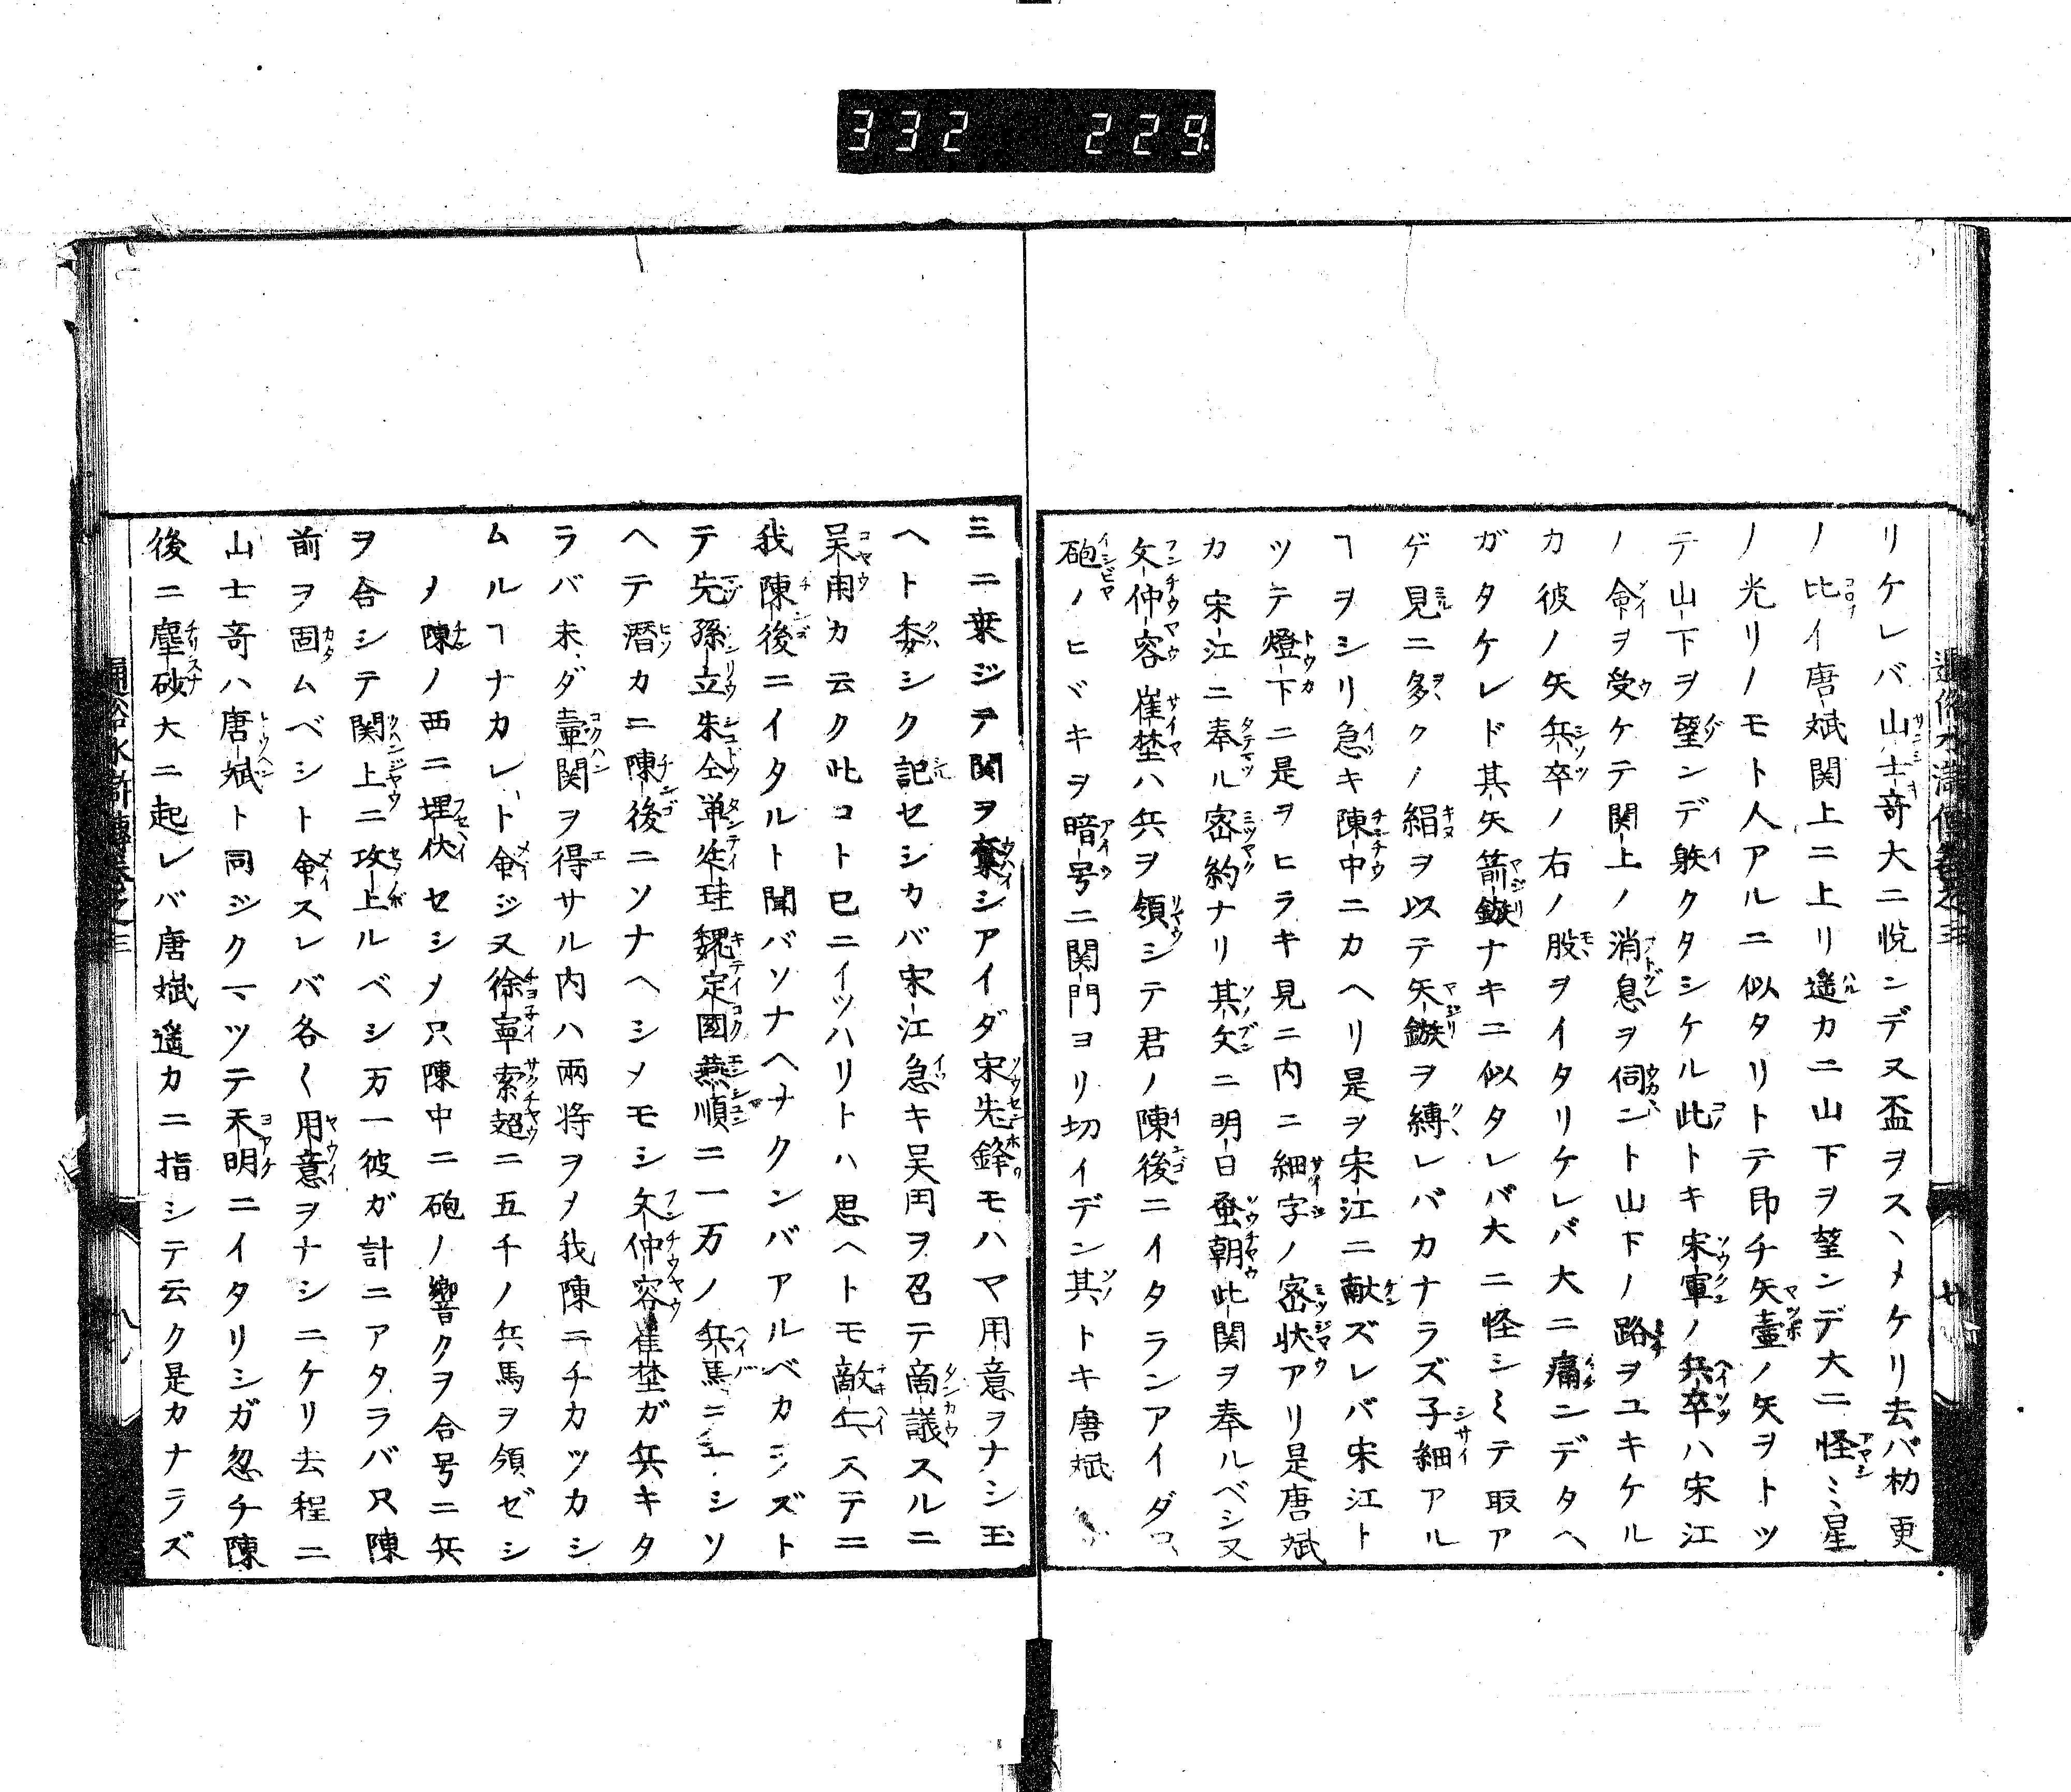 332 229
リケレバ山士竒大ニ悦ンデ又盃ヲスヽメケリ去バ初更
ノ比イ唐斌関上ニ上リ遙カニ山下ヲ望ンデ大ニ怪ミ星
ノ光リノモト人アルニ似タリトテ即チ矢壷ノ矢ヲトツ
テ山下ヲ望ンデ躲クタシケル此トキ宋軍ノ兵卒ハ宋江
ノ命ヲ受ケテ関上ノ消息ヲ伺ント山下ノ路ヲユキケル
カ彼ノ矢兵卒ノ右ノ股ヲイタリケレバ大ニ痛ンデタヘ
ガタケレド其矢箭鏃ナキニ似タレバ大ニ怪シミテ取ア
ゲ見ニ多クノ絹ヲ以テ矢鏃ヲ縛レバカナラズ子細アル
ヿヲシリ急キ陳中ニカヘリ是ヲ宋江ニ献ズレバ宋江ト
ツテ燈下ニ是ヲヒラキ見ニ内ニ細字ノ密状アリ是唐斌
カ宋江ニ奉ル密約ナリ其文ニ明日蚤朝此関ヲ奉ルベシ又
文仲容崔埜ハ兵ヲ領シテ君ノ陳後ニイタランアイダ
砲ノヒヾキヲ暗号ニ関門ヨリ切イデン其トキ唐斌
三ニ乗ジテ関ヲ奪シアイダ宋先鋒モハマ用意ヲナシ玉
ヘト委シク記セシカバ宋江急キ吴用ヲ召テ啇議スルニ
吴用カ云ク此コト已ニイツハリトハ思ヘトモ敵兵ステニ
我陳後ニイタルト聞バソナヘナクンバアルベカラズト
テ先孫立朱仝単廷珪魏定國燕順ニ一万ノ兵馬ニシソ
ヘテ潛カニ陳後ニソナヘシメモシ文仲容崔埜ガ兵キタ
ラバ未ダ壷関ヲ得サル内ハ兩将ヲメ我陳ニチカツカシ
ムルヿナカレト命ジ又徐寧索超ニ五千ノ兵馬ヲ領ゼシ
メ陳ノ西ニ埋伏セシメ只陳中ニ砲ノ響クヲ合号ニ兵
ヲ合シテ関上ニ攻上ルベシ万一彼ガ計ニアタラバ只陳
前ヲ固ムベシト命スレバ各〱用意ヲナシニケリ去程ニ
山士竒ハ唐斌ト同ジクマツテ天明ニイタリシガ忽チ陳
後ニ塵砂大ニ起レバ唐斌遙カニ指シテ云ク是カナラズ
通俗水滸傳巻之三
八